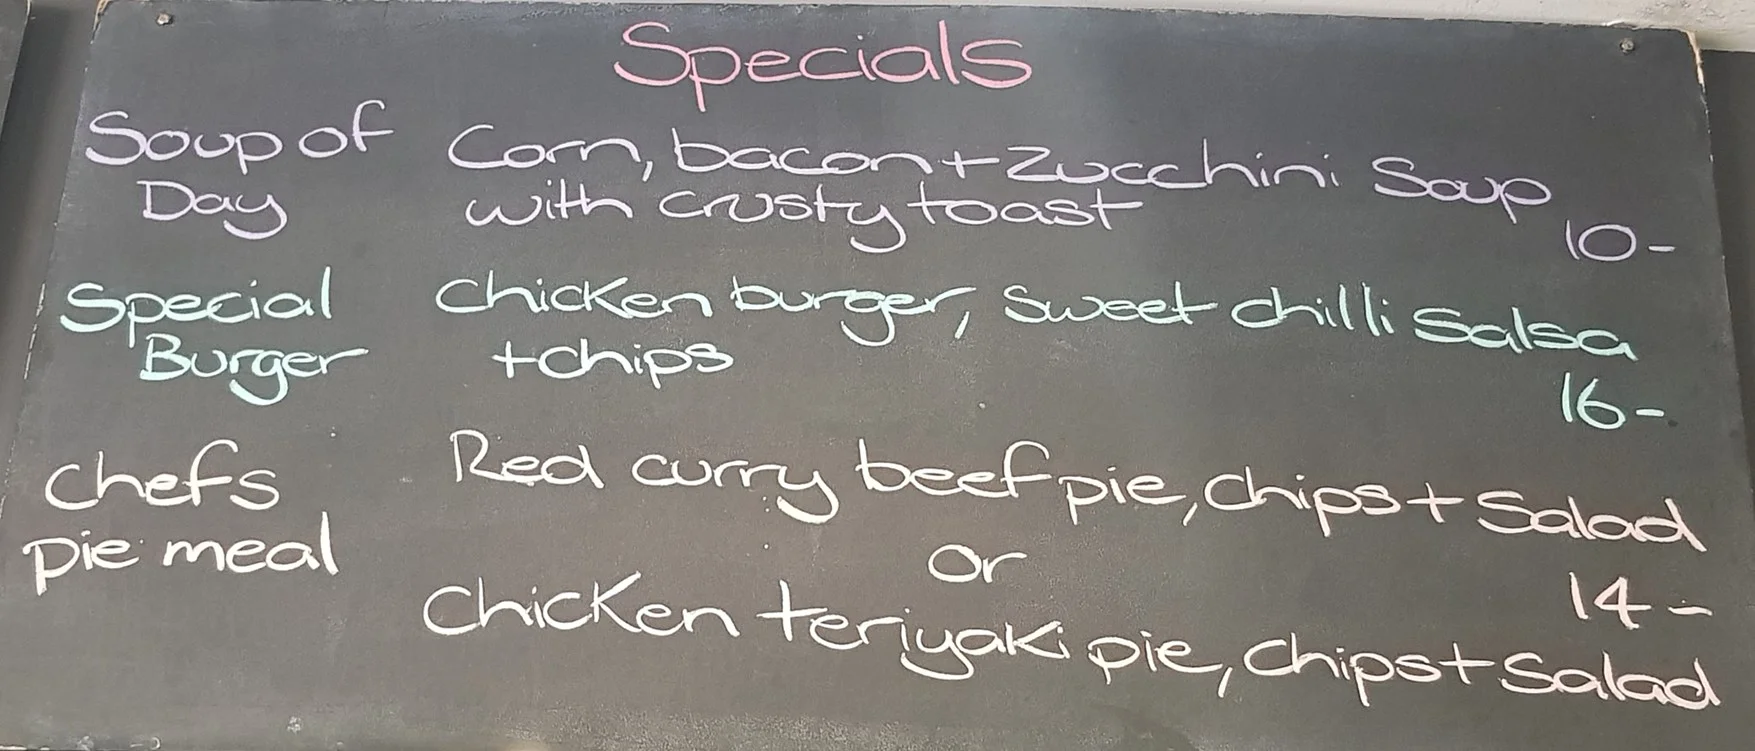 Specials
Soup of Day
Corn, bacon + Zucchini Soup
with crusty toast
10-
Special Burger
chicken burger, sweet chilli Salsa
+ chips
16-
chefs pie meal
Red curry beef pie, chips + Salad
or
14-
chicken teriyaki pie, chips + Salad